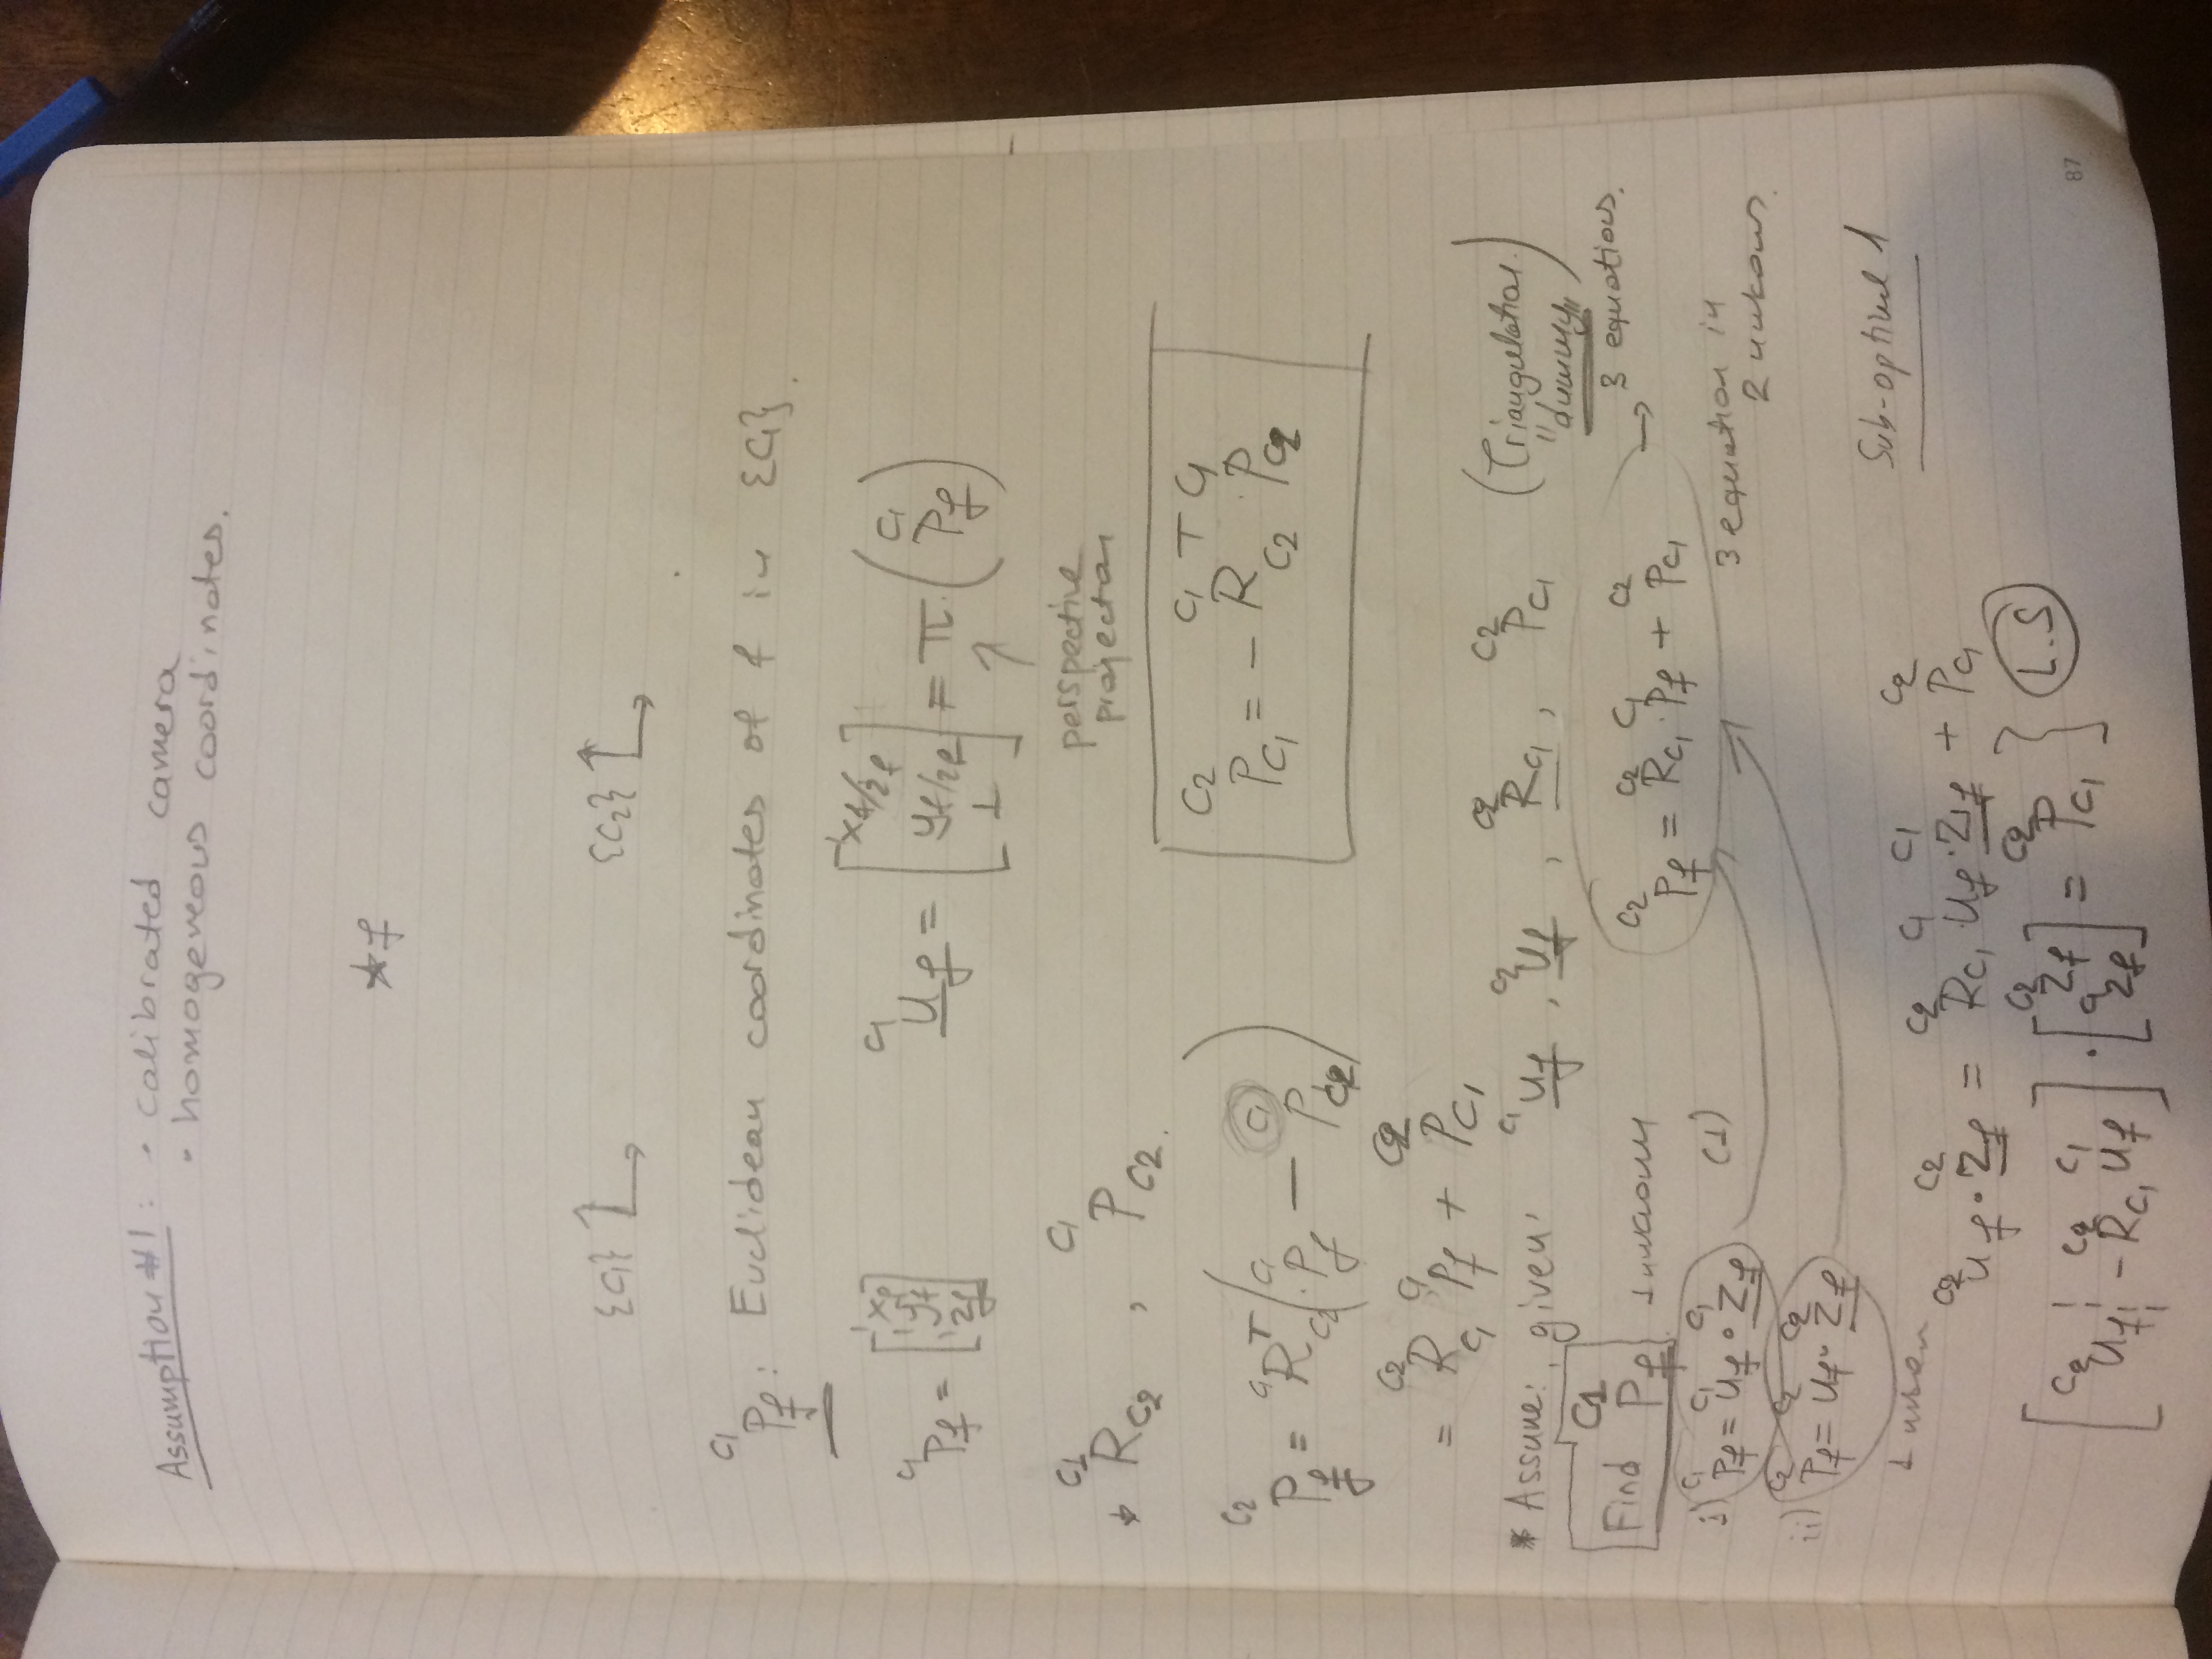 Assumption #1 : • calibrated camera
• homogeneous coordinates.
★ f
{C1} {C2}
C1 P f : Euclidean coordinates of f in {C1}.
C1 P f = [ 1 x f 1 y f 1 z f ] C1 u f = [ 1 x f / z f y f / z f 1 ] = π · ( C1 P f )
perspective
projection
* C1 R C2 , C1 P C2 .
C2 P C1 = - C1 R C2 T · C1 P C2
C2 P f = C1 R C2 T ( C1 P f — C1 P C2 )
= C2 R C1 C1 P f + C2 P C1
* Assume: , given: C1 u f , C2 u f , C2 R C1 , C2 P C1 ( Triangulation.
"dummy" )
Find C1 P f 1 unknown C2 P f = C2 R C1 · C1 P f + C2 P C1 → 3 equations.
i) C1 P f = C1 u f • C1 Z f (1) 3 equation in
2 unkowns.
ii) C2 P f = C2 u f · C2 Z f
Sub-optimal 1
C2 u f • C2 Z f = C2 R C1 · C1 u f · C1 Z f + C2 P C1
[ C2 u f ¦ - C2 R C1 C1 u f ] · [ C2 Z f C1 Z f ] = C2 P C1 } L.S
87